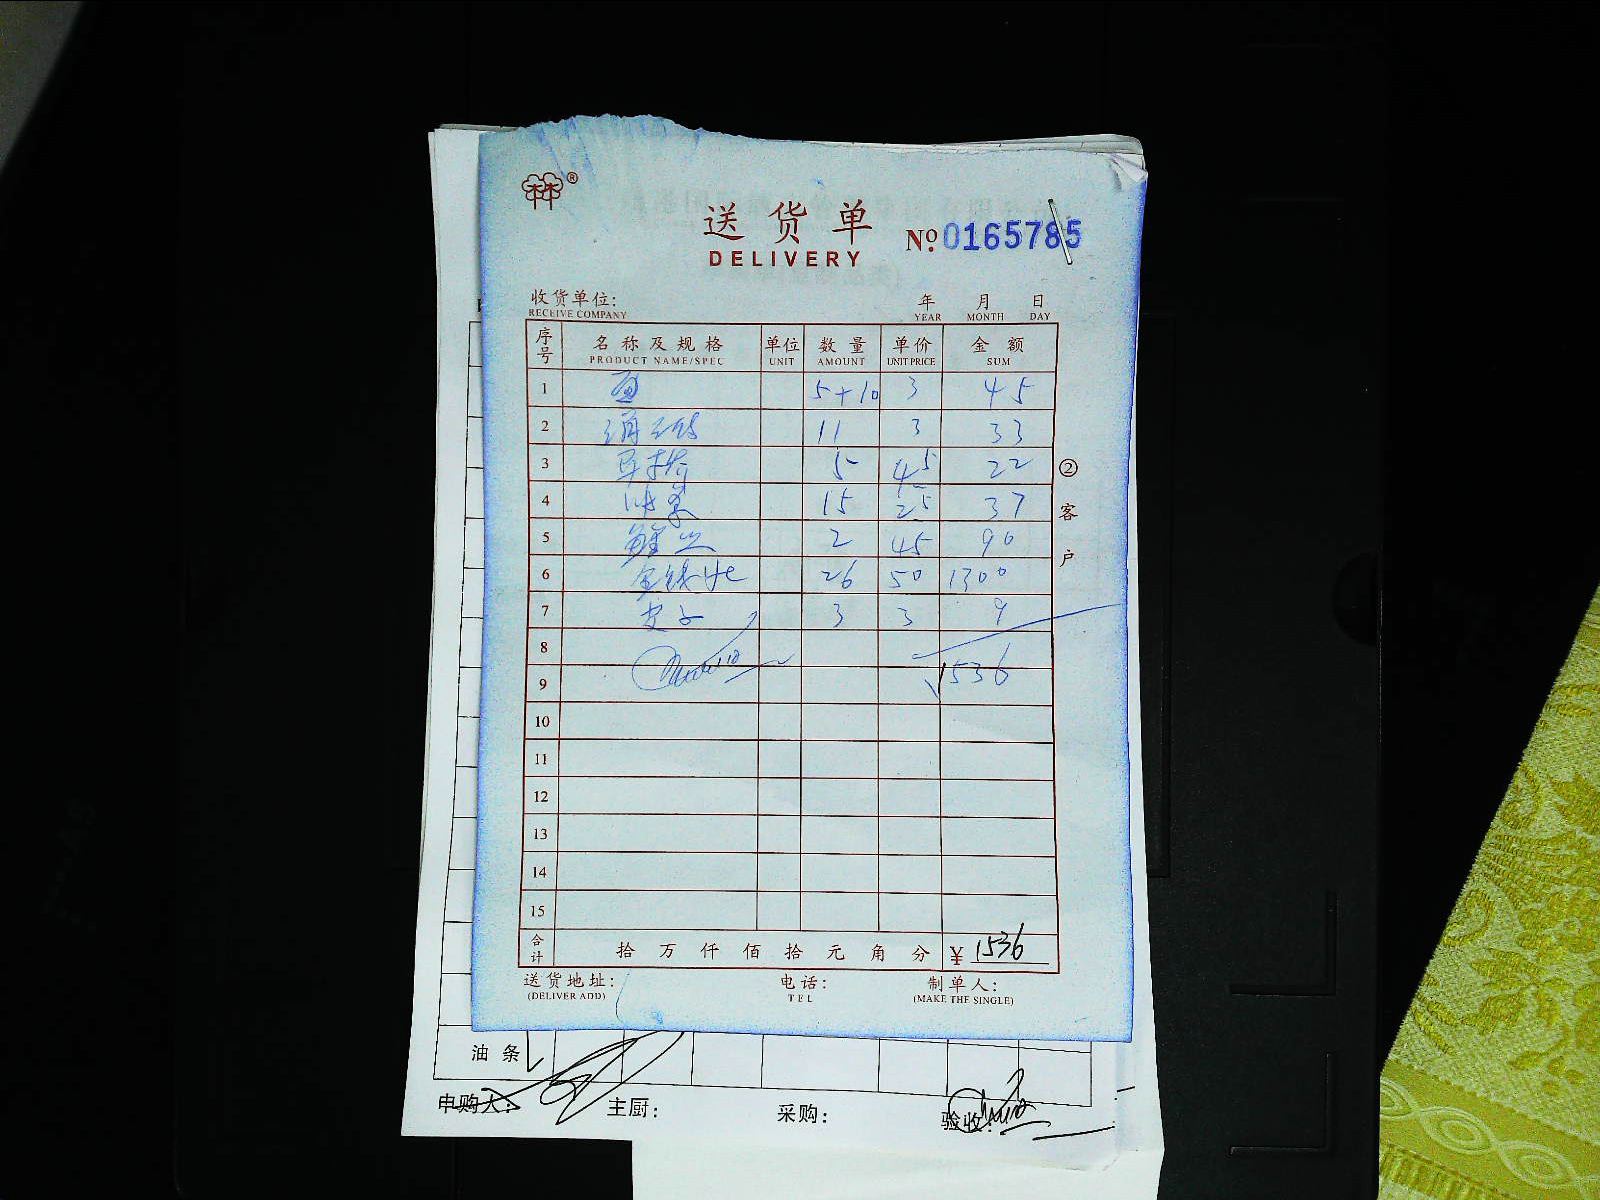 ®
送货单
DELIVERY
№ 0165785
收货单位: 年 月 日
RECEIVE COMPANY YEAR MONTH DAY
序号 名称及规格 单位 数量 单价 金额
PRODUCT NAME/SPEC UNIT AMOUNT UNIT PRICE SUM
1 5+10 3 45
2 11 3 33
3 5 45 22
4 15 25 37
5 2 45 90
6 26 50 1300
7 皮子 3 3 9
8
9 1536
10
11
12
13
14
15
合计 拾 万 仟 佰 拾 元 角 分 ¥ 1536
送货地址: 电话: 制单人:
(DELIVER ADD) TEL (MAKE THE SINGLE)
② 客户
油条
申购人: 主厨: 采购: 验收: